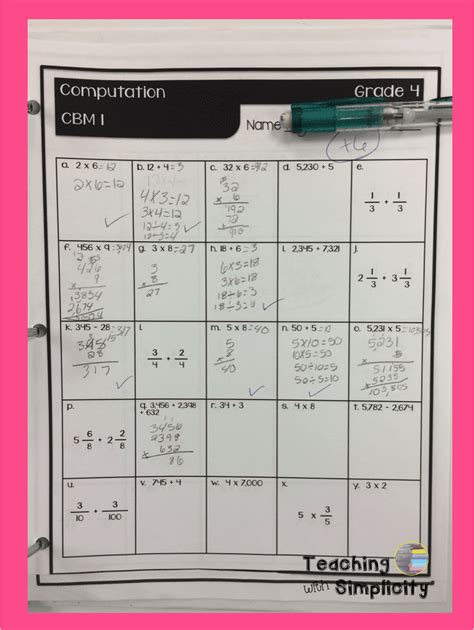 Computation
Grade 4
CBM 1
Name
+6
a. 2 x 6 = 12
2x6=12
b. 12 ÷ 4 = 3
4x3=12
3x4=12
12÷4=3
12÷3=4
c. 32 x 6 =
32
x 6
192
72
910
d. 5,230 ÷ 5
e.
1/3 + 1/3
f. 456 x 9 =
426
x 9
3834
2674
g. 3 x 8 = 27
3
x 8
27
h. 18 ÷ 6 = 3
6x3=18
3x6=18
18÷6=3
18÷3=6
i. 2,845 + 7,321
j.
2 1/3 + 3 1/3
k. 345 - 28 = 317
345
28
317
l.
3/4 + 2/4
m. 5 x 8 = 40
5
x 8
40
n. 50 ÷ 5 = 10
5x10=50
10x5=50
50÷10=5
50÷5=10
o. 5,231 x 5 =
5231
x 5
51155
5235
103,505
p.
5 6/8 + 2 2/8
q. 3,456 + 2,398
+ 632
3456
2398
x 632
86
r. 34 ÷ 3
s. 4 x 8
t. 5,782 - 2,674
u.
3/10 + 3/100
v. 745 ÷ 4
w. 4 x 7,000
x.
5 x 3/5
y. 3 x 2
Teaching
with Simplicity